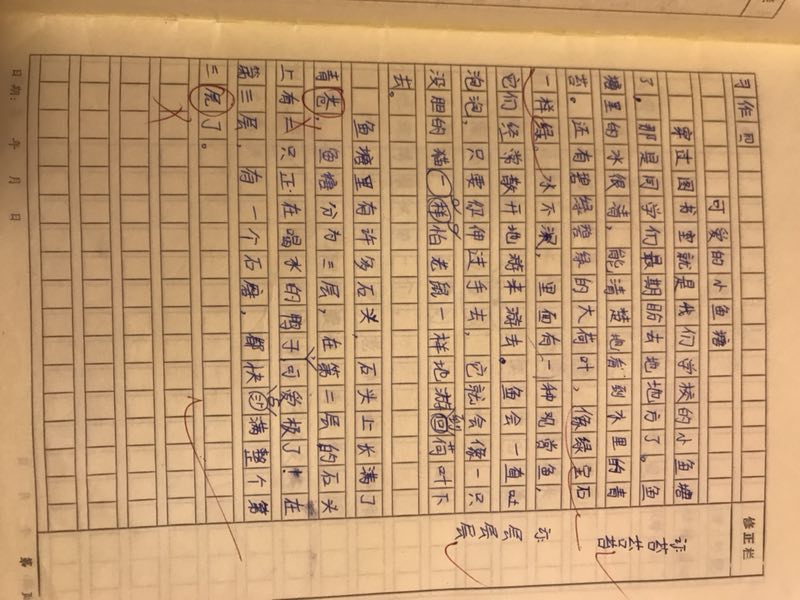 习作 四
修正栏
可爱的小鱼塘
穿过图书室就是我们学校的小鱼塘
了，那是同学们最期盼去地地方了。鱼
塘里的水很清，能清楚地看到水里的青
苔。还有碧绿碧绿的大荷叶，像绿宝石
一样绿。水不深，里面有一种观赏鱼，
它们经常散开地游来游去。鱼会一直吐
泡泡，只要你伸过手去，它就会像一只
没胆的猫一样怕老鼠一样地游到回荷叶下
去。
鱼塘里有许多石头，石头上长满了
青苍，鱼塘分为三层，在第二层的石头
上有三只正在喝水的鸭子可爱极了！在
第三层，有一个石磨，都快占满整个第
三了。
订：苔苔苔
订：层层层
日期： 年 月 日
第 页